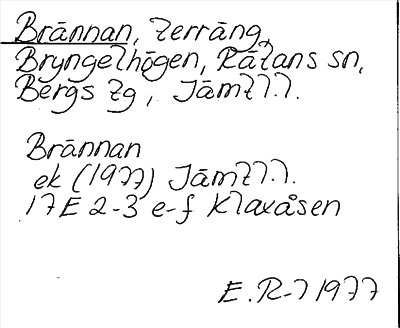 Brännan, terräng,
Bryngelhögen, Rätans sn,
Bergs tg, Jämtl.
Brännan
ek (1977) Jämtl.
17E 2-3 e-f Klaxåsen
E. R-l 1977